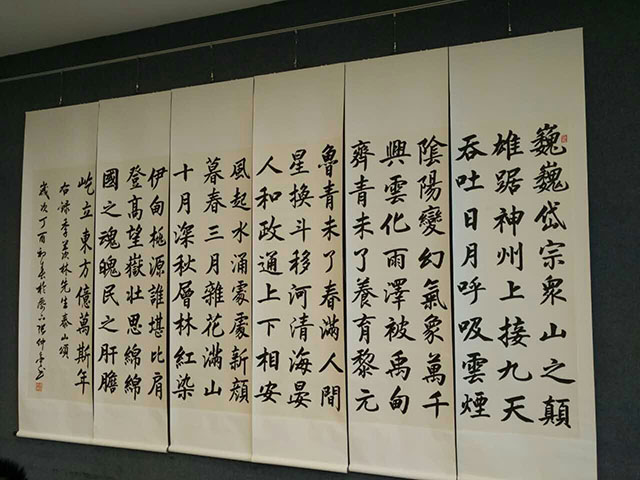 巍巍岱宗衆山之顛
雄踞神州上接九天
吞吐日月呼吸雲煙
陰陽變幻氣象萬千
興雲化雨澤被禹甸
齊青未了養育黎元
魯青未了春滿人間
星換斗移河清海晏
人和政通上下相安
風起水涌處處新顏
暮春三月雜花滿山
十月深秋層林紅染
伊甸桃源誰堪比肩
登高望嶽壯思綿綿
國之魂魄民之肝膽
屹立東方億萬斯年
右錄季羨林先生泰山頌
歲次丁酉初春於